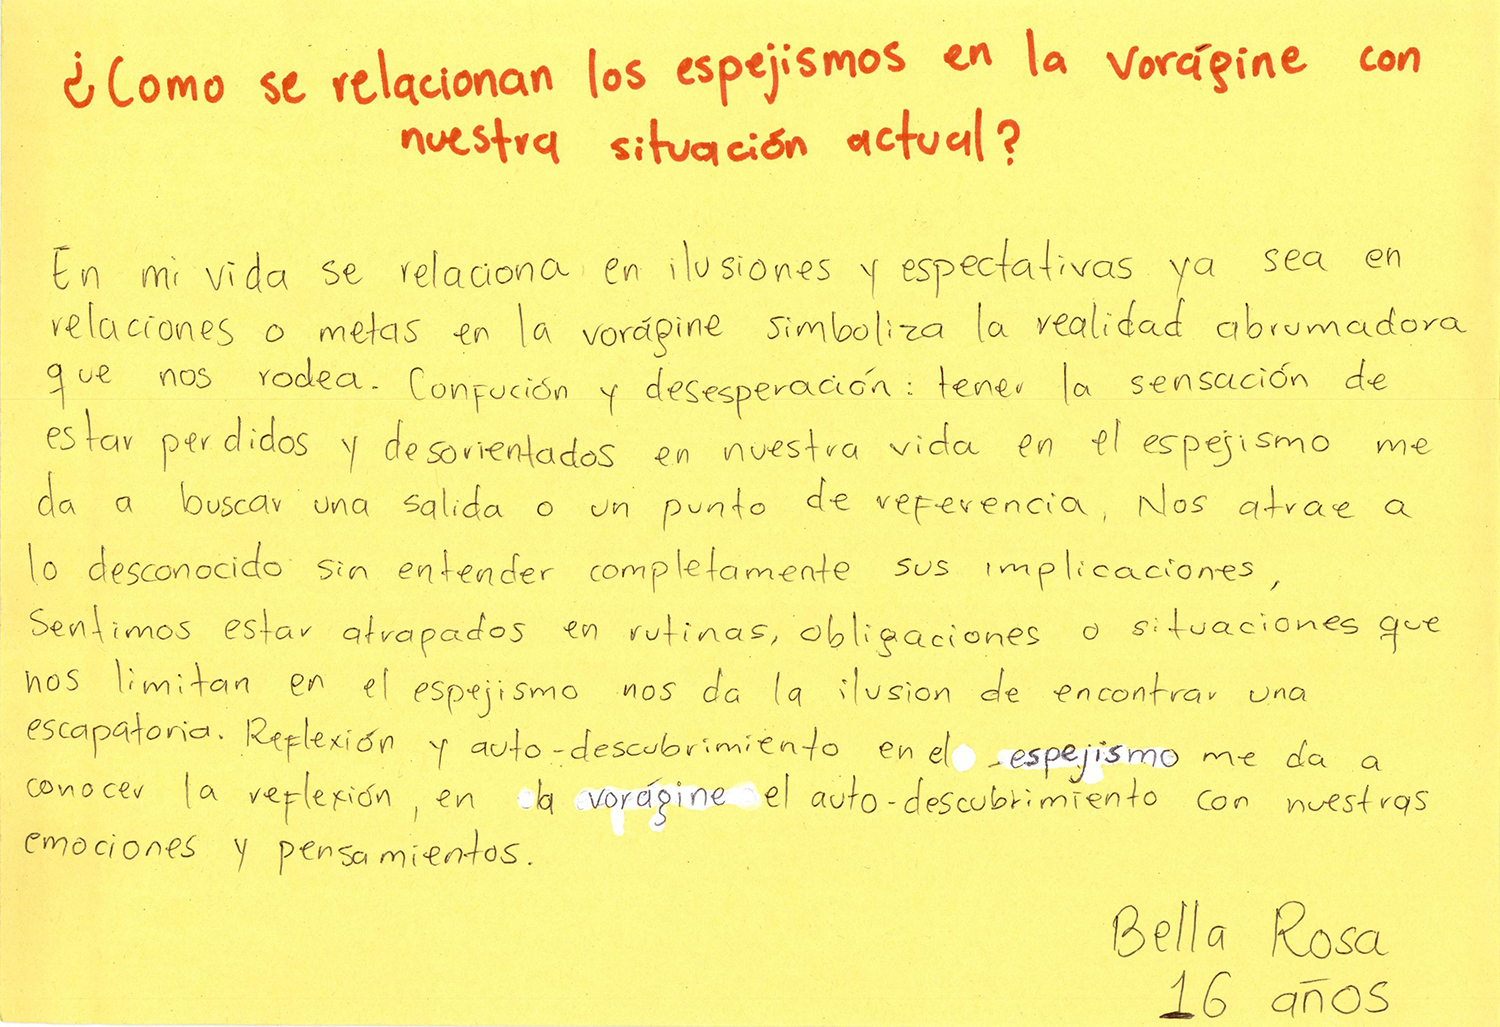 ¿Como se relacionan los espejismos en la vorágine con
nuestra situación actual?
En mi vida se relaciona en ilusiones y espectativas ya sea en
relaciones o metas en la vorágine simboliza la realidad abrumadora
que nos rodea. Confución y desesperación: tener la sensación de
estar perdidos y desorientados en nuestra vida en el espejismo me
da a buscar una salida o un punto de referencia, Nos atrae a
lo desconocido sin entender completamente sus implicaciones,
Sentimos estar atrapados en rutinas, obligaciones o situaciones que
nos limitan en el espejismo nos da la ilusion de encontrar una
escapatoria. Reflexión y auto-descubrimiento en el espejismo me da a
conocer la reflexión, en la vorágine el auto-descubrimiento con nuestras
emociones y pensamientos.
Bella Rosa
16 años